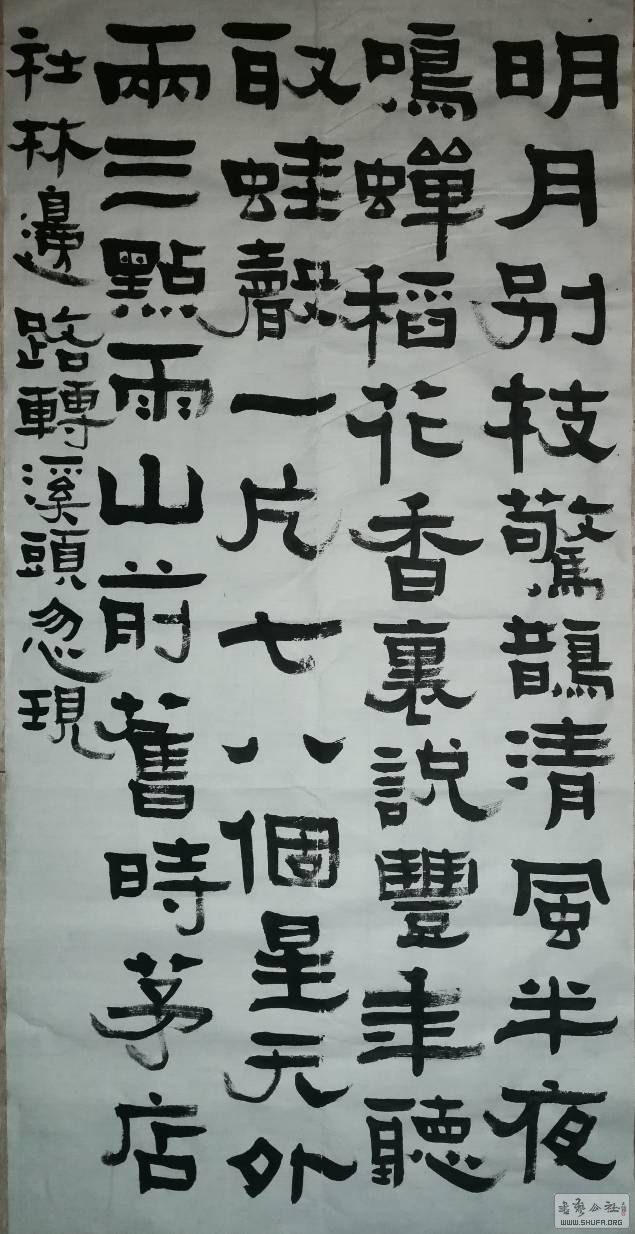 明月别枝驚鵲清風半夜
鳴蟬稻花香裏説豐年聽
取蛙聲一片七八個星天外
兩三點雨山前舊時茅店
社林邊路轉溪頭忽現
書藝公社
WWW.SHUFA.ORG